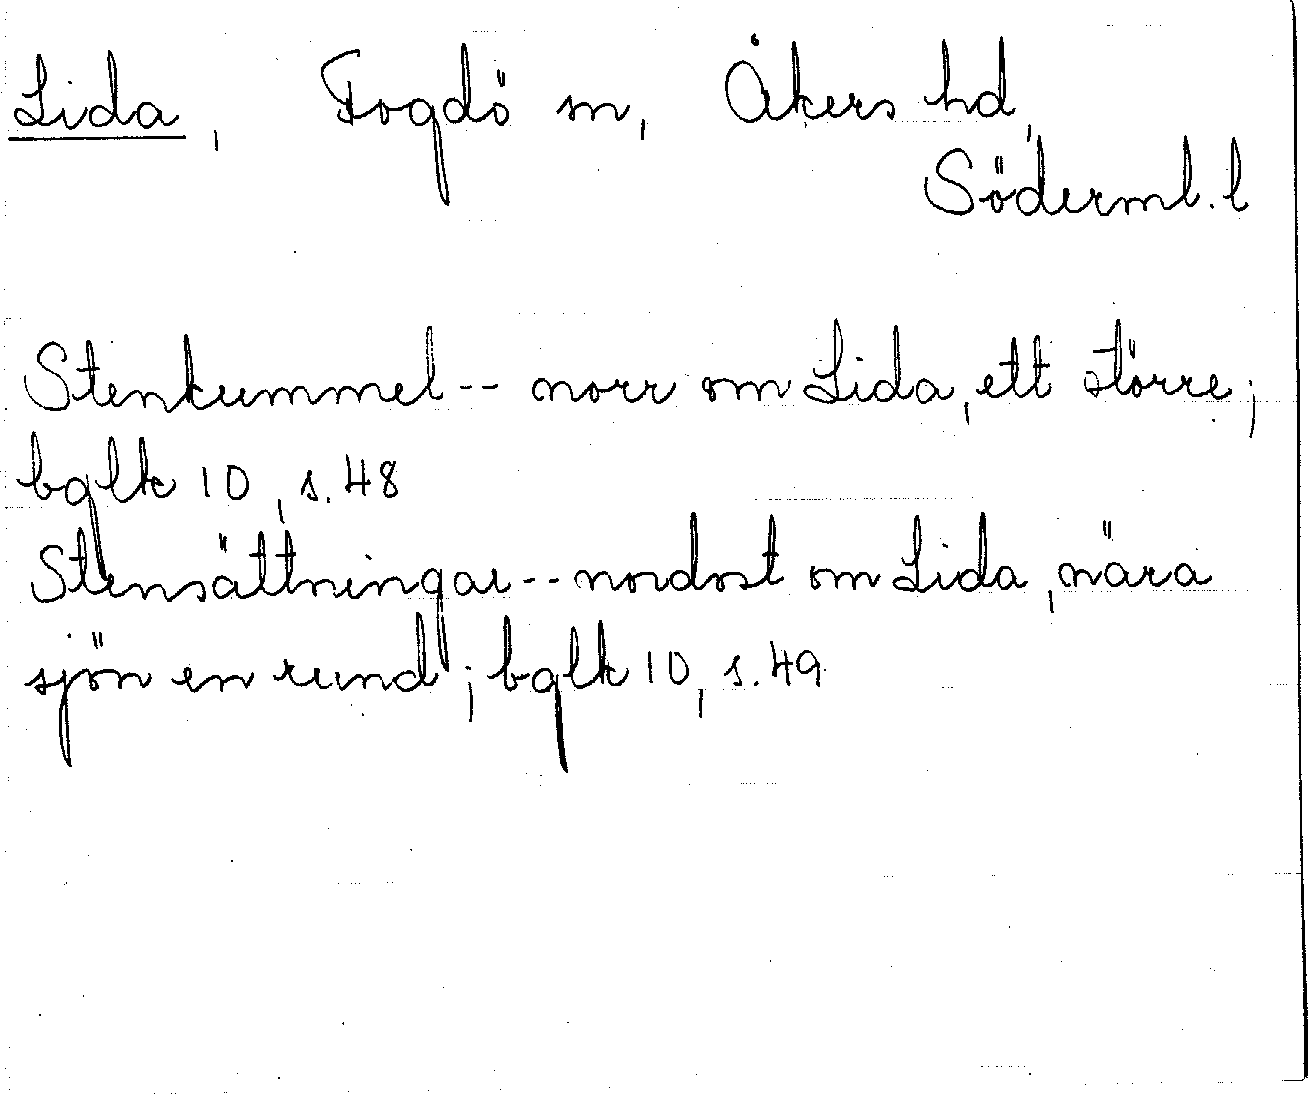 Lida, Fogdö sn, Åkers hd,
Söderml. l
Stenkummel -- norr om Lida, ett större;
bglk 10, s. 48
Stensättningar -- nordost om Lida, nära
sjön en rund; bglk 10, s. 49